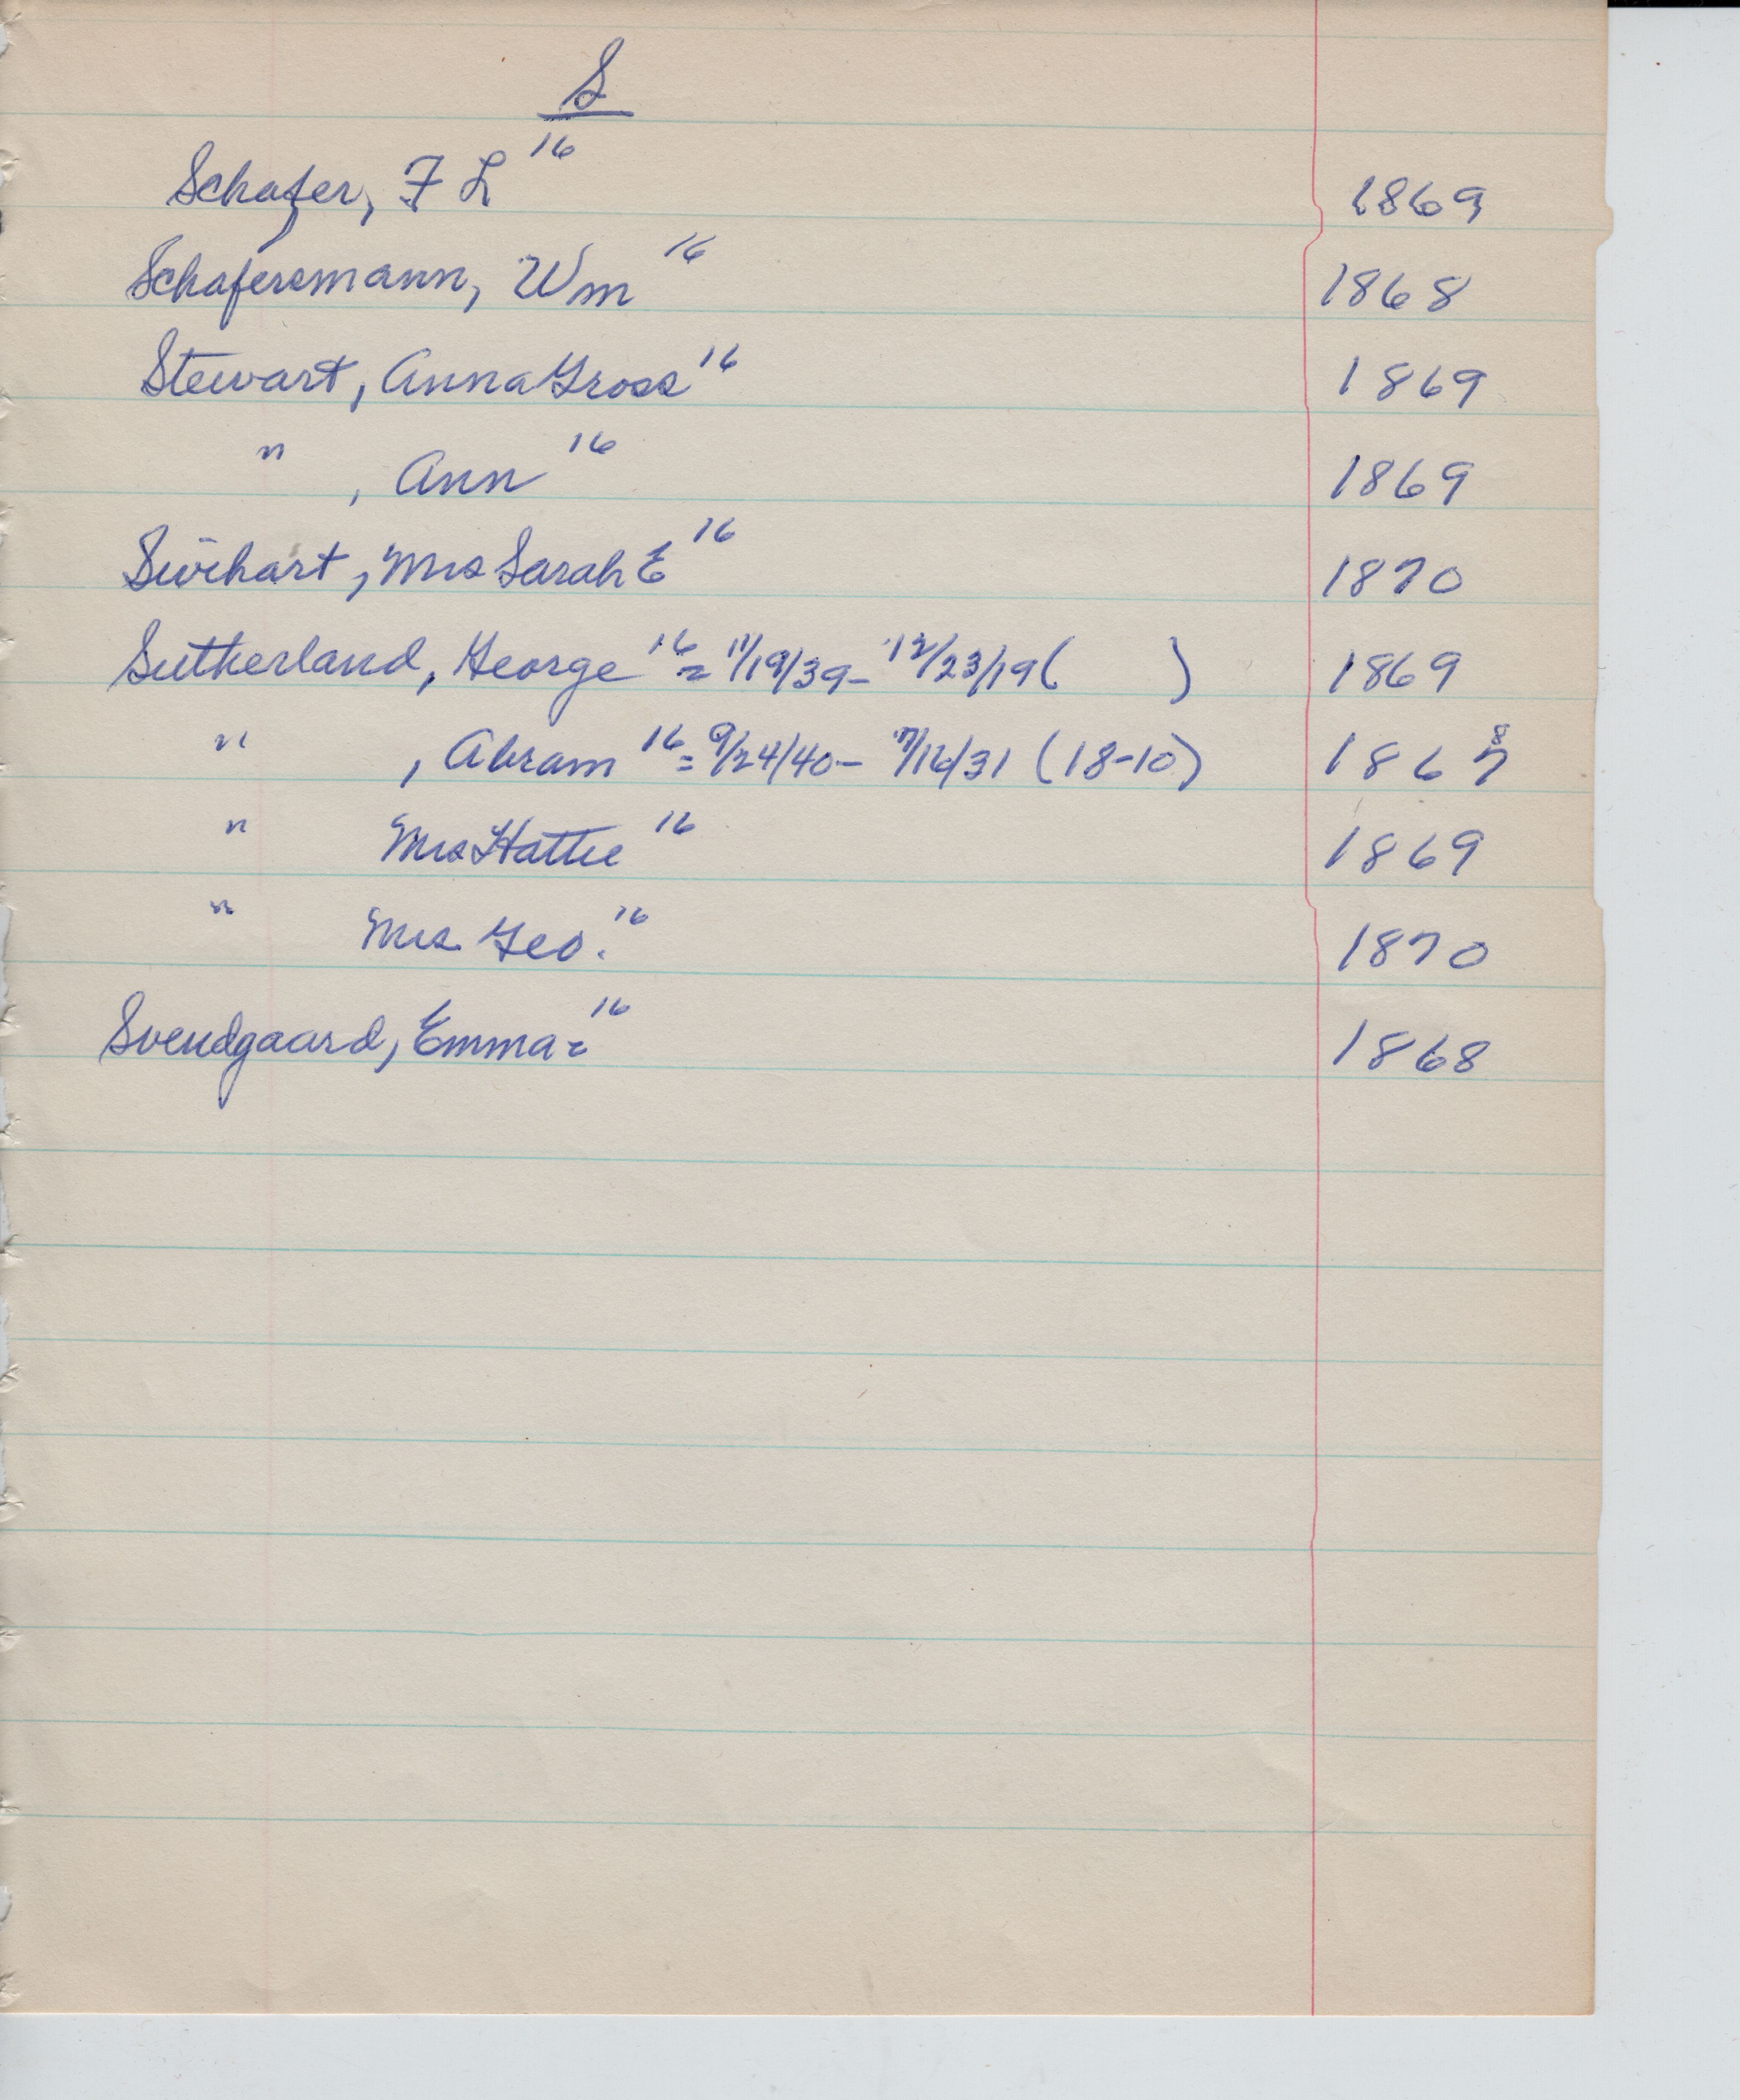 S
Schafer, F L 16 1869
Schafersmann, Wm 16 1868
Stewart, Anna Gross 16 1869
" , Ann 16 1869
Swihart, Mrs Sarah E 16 1870
Sutherland, George 16 = 11/19/39 - 12/23/19 ( ) 1869
" , Abram 16 = 9/24/40 - 7/16/31 (18-10) 1867 8
" Mrs Hattie 16 1869
" Mrs Geo. 16 1870
Svendgaard, Emma = 16 1868